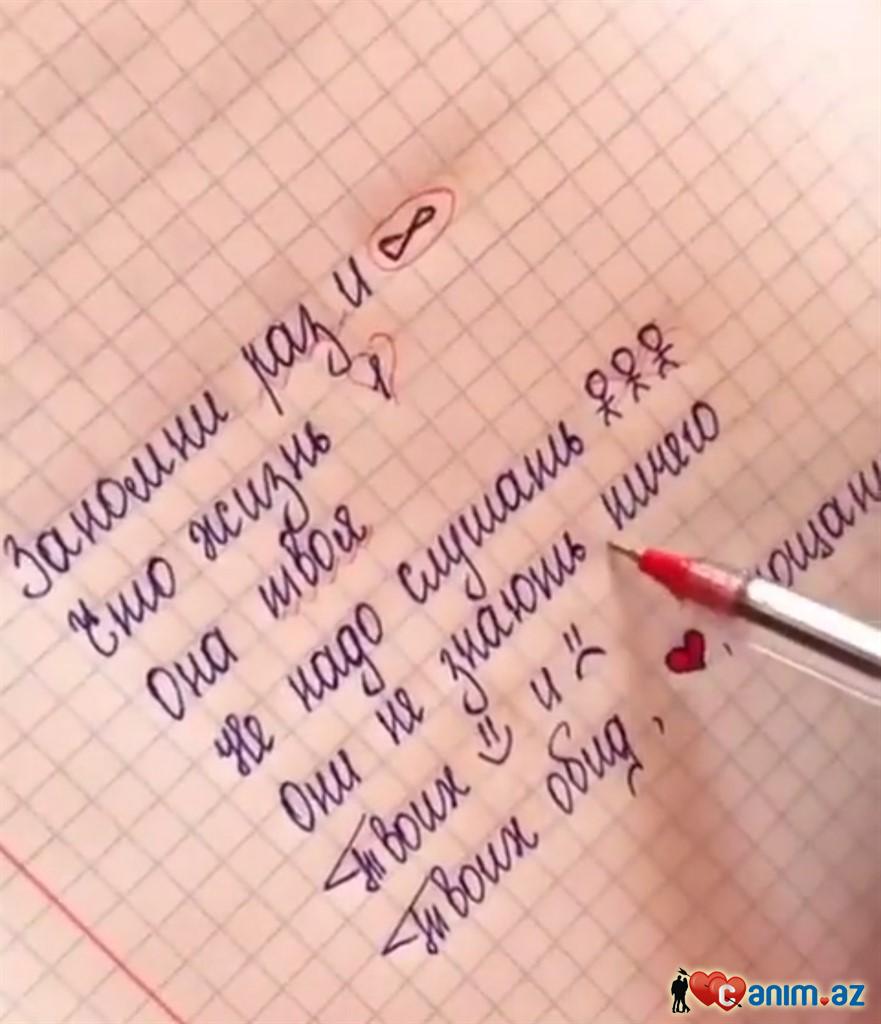 Запомни раз и ∞
Что жизнь 1
она твоя
Не надо слушать
они не знають ничего
Твоих и
Твоих обид, ❤,
canim.az